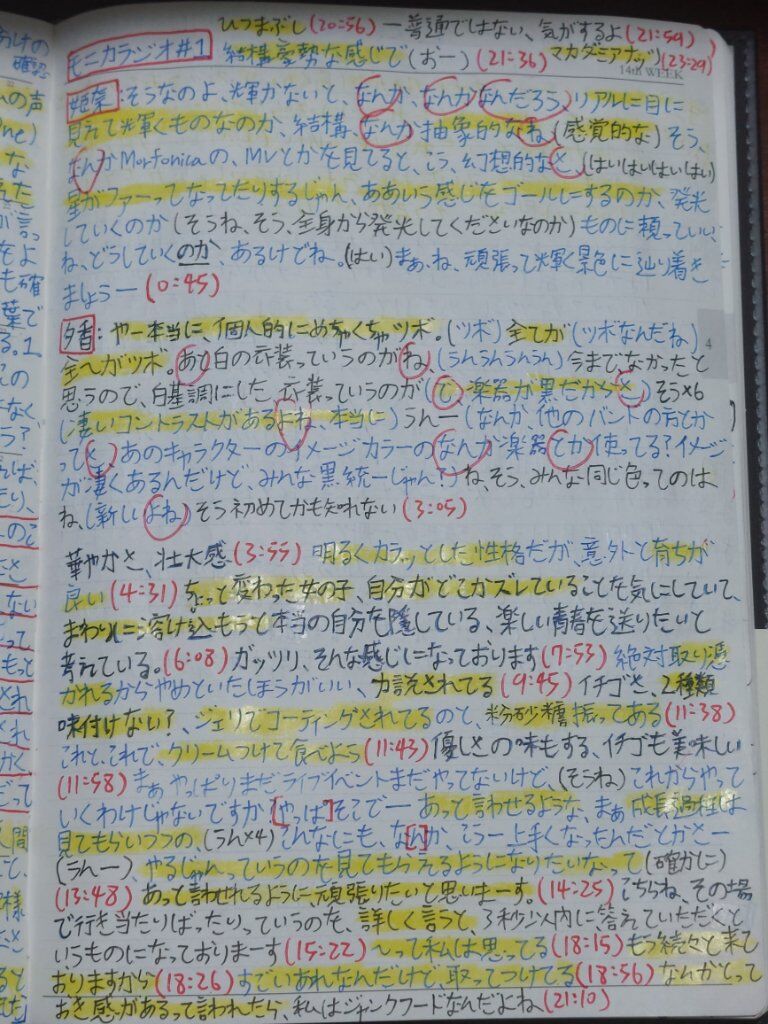 ひつまぶし(20:56) ー普通ではない、気がするよ(21:59)
モニカラジオ#1 結構姿勢な感じで(おー)(21:36) マカダミアナッツ(23:29)
14th WEEK
姫菜:そうなのよ、輝かないと、なんか、なんかなんだろう、リアルに目に
見えて輝くものなのか、結構、なんか抽象的なね、(感覚的な)そう、
なんかMorfonicaの、MVとかを見てると、こう、幻想的なさ、(はいはいはいはい)
星がファーってなってたりするじゃん、ああいう感じをゴールにするのか、発光
していくのか(そうね、そう、全身から発光してくださいなのか)ものに頼っていい、
ね、どうしていくのか、あるけどね。(はい)まぁ、ね、頑張って輝く景色に辿り着き
ましょうー(0:45)
夕香:やー本当に、個人的にめちゃくちゃツボ。(ツボ)全てが(ツボなんだね)
全てがツボ。あと白の衣装っていうのがね、(うんうんうんうん)今までなかったと
思うので、白基調にした、衣装っていうのが(で、楽器が黒だからさ)そう×6
(凄いコントラストがあるよね、本当に)うんー(なんか、他のバンドの方とか
ってさ、あのキャラクターのイメージカラーのなんか楽器とか使ってる?イメージ
が凄くあるんだけど、みんな黒統一じゃん?)ね、そう、みんな同じ色ってのは
ね、(新しいよね)そう初めてかも知れない(3:05)
華やかさ、壮大感(3:55) 明るくカラッとした性格だが、意外と育ちが
良い(4:31) ちょっと変わった女の子、自分がどこかズレていることを気にしていて、
まわりに溶け込もうと本当の自分を隠している、楽しい青春を送りたいと
考えている。(6:08) ガッツリ、そんな感じになっております(7:53) 絶対取り憑
かれるからやめといたほうがいい、力説されてる(9:45) イチゴさ、2種類
味付けない?、ジェリでコーティングされてるのと、粉砂糖振ってある(11:38)
これと、これで、クリームつけて食べよう(11:43) 優しさの味もする、イチゴも美味しい
(11:58) まぁやっぱりまだライブイベントまだやってないけど、(そうね)これからやって
いくわけじゃないですか[やっぱ]そこでー あっと言わせるような、まぁ成長過程は
見てもらいつつの、(うん×4)こんなにも、なんか、こうー上手くなったんだとかさー
(うんー)、やるじゃんっていうのを見てもらえるようになりたいなって(確かに)
(13:48) あっと言わせれるように、頑張りたいと思いまーす。(14:25) こちらね、その場
で行き当たりばったりっていうのを、詳しく言うと、3秒以内に答えていただくと
いうものになっておりまーす(15:22) 〜って私は思ってる(18:15) もう続々と来て
おりますから(18:26) すごいあれなんだけど、取ってつけてる(18:56) なんかとって
おき感があるって言われたら、私はジャンクフードなんだよね(21:10)